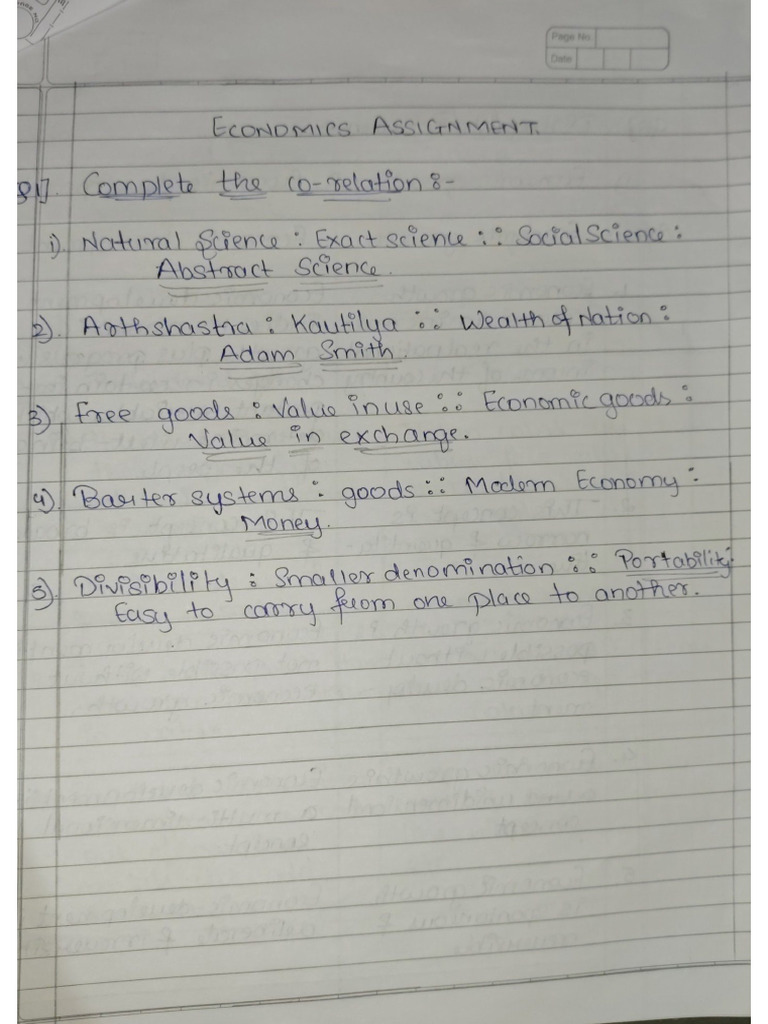 Page No
Date
ECONOMICS ASSIGNMENT.
Q1]. Complete the co-relation :-
i). Natural Science : Exact science :: Social Science :
Abstract Science.
2). Arthshastra : Kautilya :: Wealth of Nation :
Adam Smith.
3). Free goods : Value in use :: Economic goods :
Value in exchange.
4). Barter systems : goods :: Modern Economy :
Money.
5). Divisibility : Smaller denomination :: Portability:
Easy to carry from one place to another.